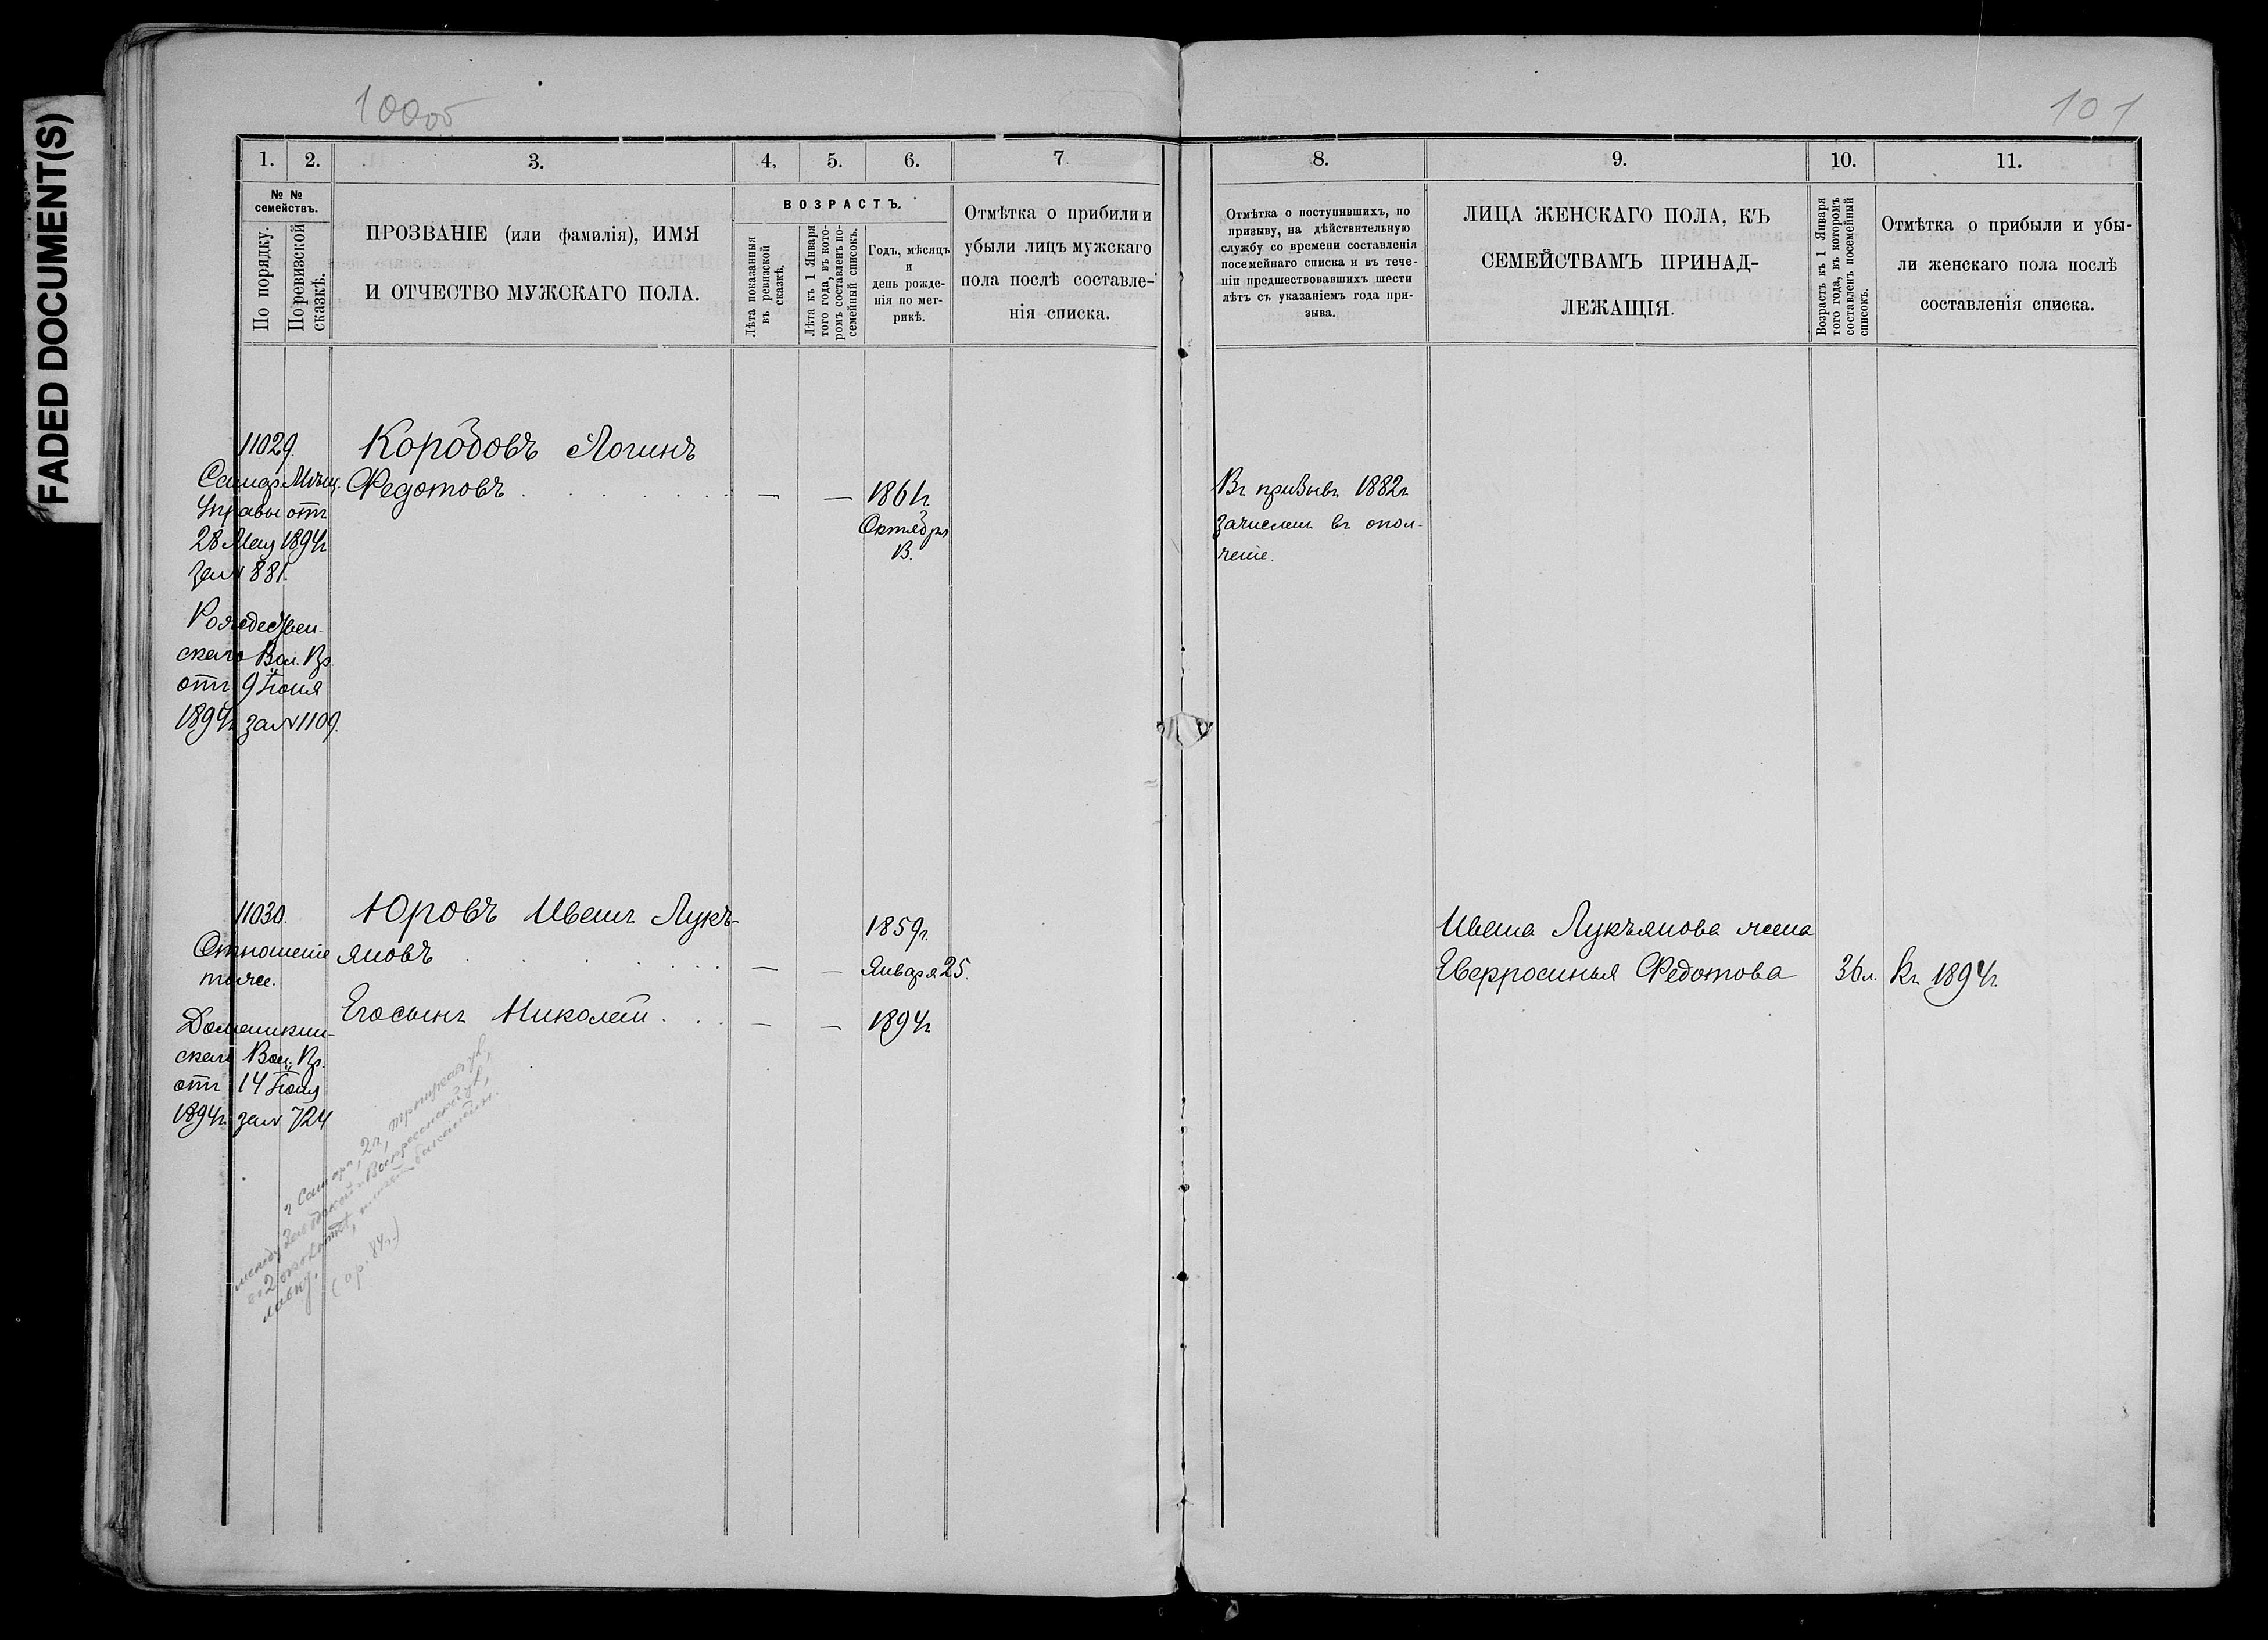 FADED DOCUMENT(S)
100об
101
1.
2.
3.
4.
5.
6.
7.
8.
9.
10.
11.
№ №
семействъ.
По порядку.
По ревизской
сказкѣ.
ПРОЗВАНІЕ (или фамилія), ИМЯ
И ОТЧЕСТВО МУЖСКАГО ПОЛА.
ВОЗРАСТЪ.
Лѣта показанныя
въ ревизской
сказкѣ.
Лѣта къ 1 Января
того года, въ кото-
ромъ составленъ по-
семейный списокъ.
Годъ, мѣсяцъ
и
день рожде-
нія по мет-
рикѣ.
Отмѣтка о прибыли и
убыли лицъ мужскаго
пола послѣ составле-
нія списка.
Отмѣтка о поступившихъ, по
призыву, на дѣйствительную
службу со времени составленія
посемейнаго списка и въ тече-
ніи предшествовавшихъ шести
лѣтъ съ указаніемъ года при-
зыва.
ЛИЦА ЖЕНСКАГО ПОЛА, КЪ
СЕМЕЙСТВАМЪ ПРИНАД-
ЛЕЖАЩІЯ.
Возрастъ къ 1 Января
того года, въ которомъ
составленъ посемейный
списокъ.
Отмѣтка о прибыли и убы-
ли женскаго пола послѣ
составленія списка.
11029.
Самар. Мѣщ.
Управы отъ
28 Мая 1894г
за № 881.
Рождествен-
скаго Вол. Пр.
отъ 9 Іюня
1894г. за № 1109.
Коробовъ Логинъ
Федотовъ . . . . . . .
— — 1861г.
Октября
13.
Въ призывъ 1882г
зачисленъ въ опол-
ченіе.
11030.
Отношеніе
тоже.
Домашкин-
скаго Вол. Пр.
отъ 14 Іюня
1894г. за № 724
Юровъ Иванъ Лукъ-
яновъ . . . . . . .
— — 1859г.
Января 25.
Его сынъ Николай . . .
— — 1894г.
Ивана Лукъянова жена
Евфросинья Федотова
36 л.
Къ 1894г.
г Самара, 2ч, троицкая ул,
между Заводской и Воскресенской ул,
лавку.